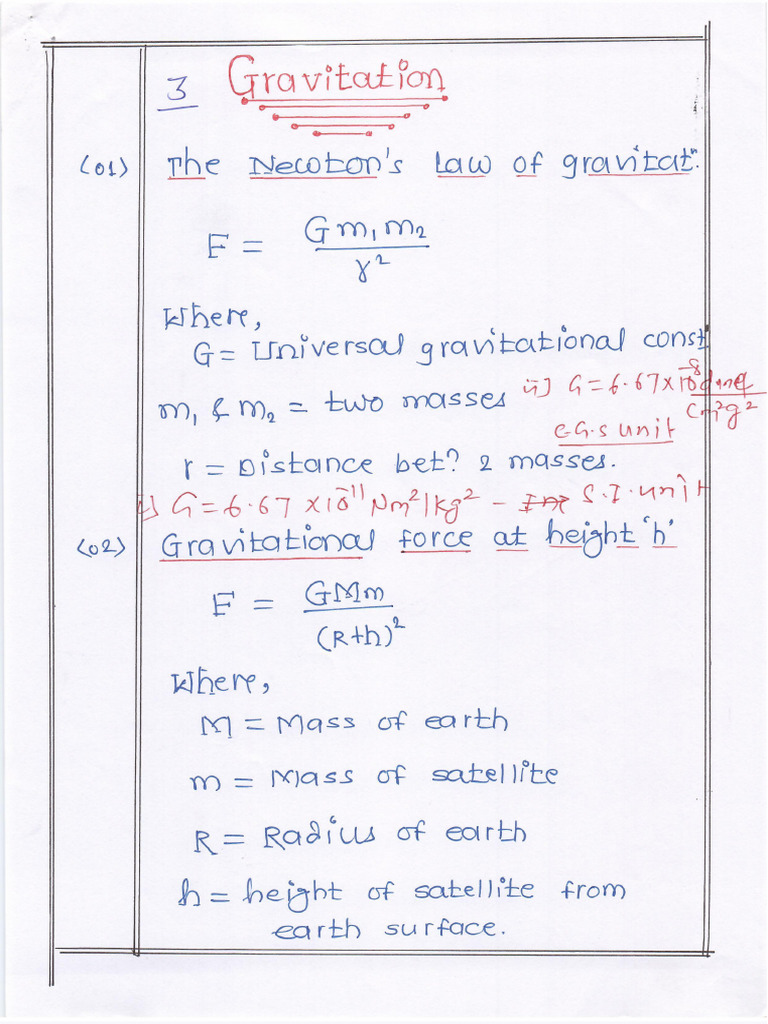 3 Gravitation
(01) The Newton's Law of gravitatⁿ.
F = G m₁ m₂ / r²
Where,
G = Universal gravitational const
ii) G = 6.67 × 10⁻⁸ dyne / cm² g²
m₁ & m₂ = two masses
C.G.S unit
r = Distance bet? 2 masses.
i) G = 6.67 × 10⁻¹¹ Nm²/kg² – S.I. unit
(02) Gravitational force at height 'h'
F = GMm / (R+h)²
Where,
M = Mass of earth
m = Mass of satellite
R = Radius of earth
h = height of satellite from
earth surface.